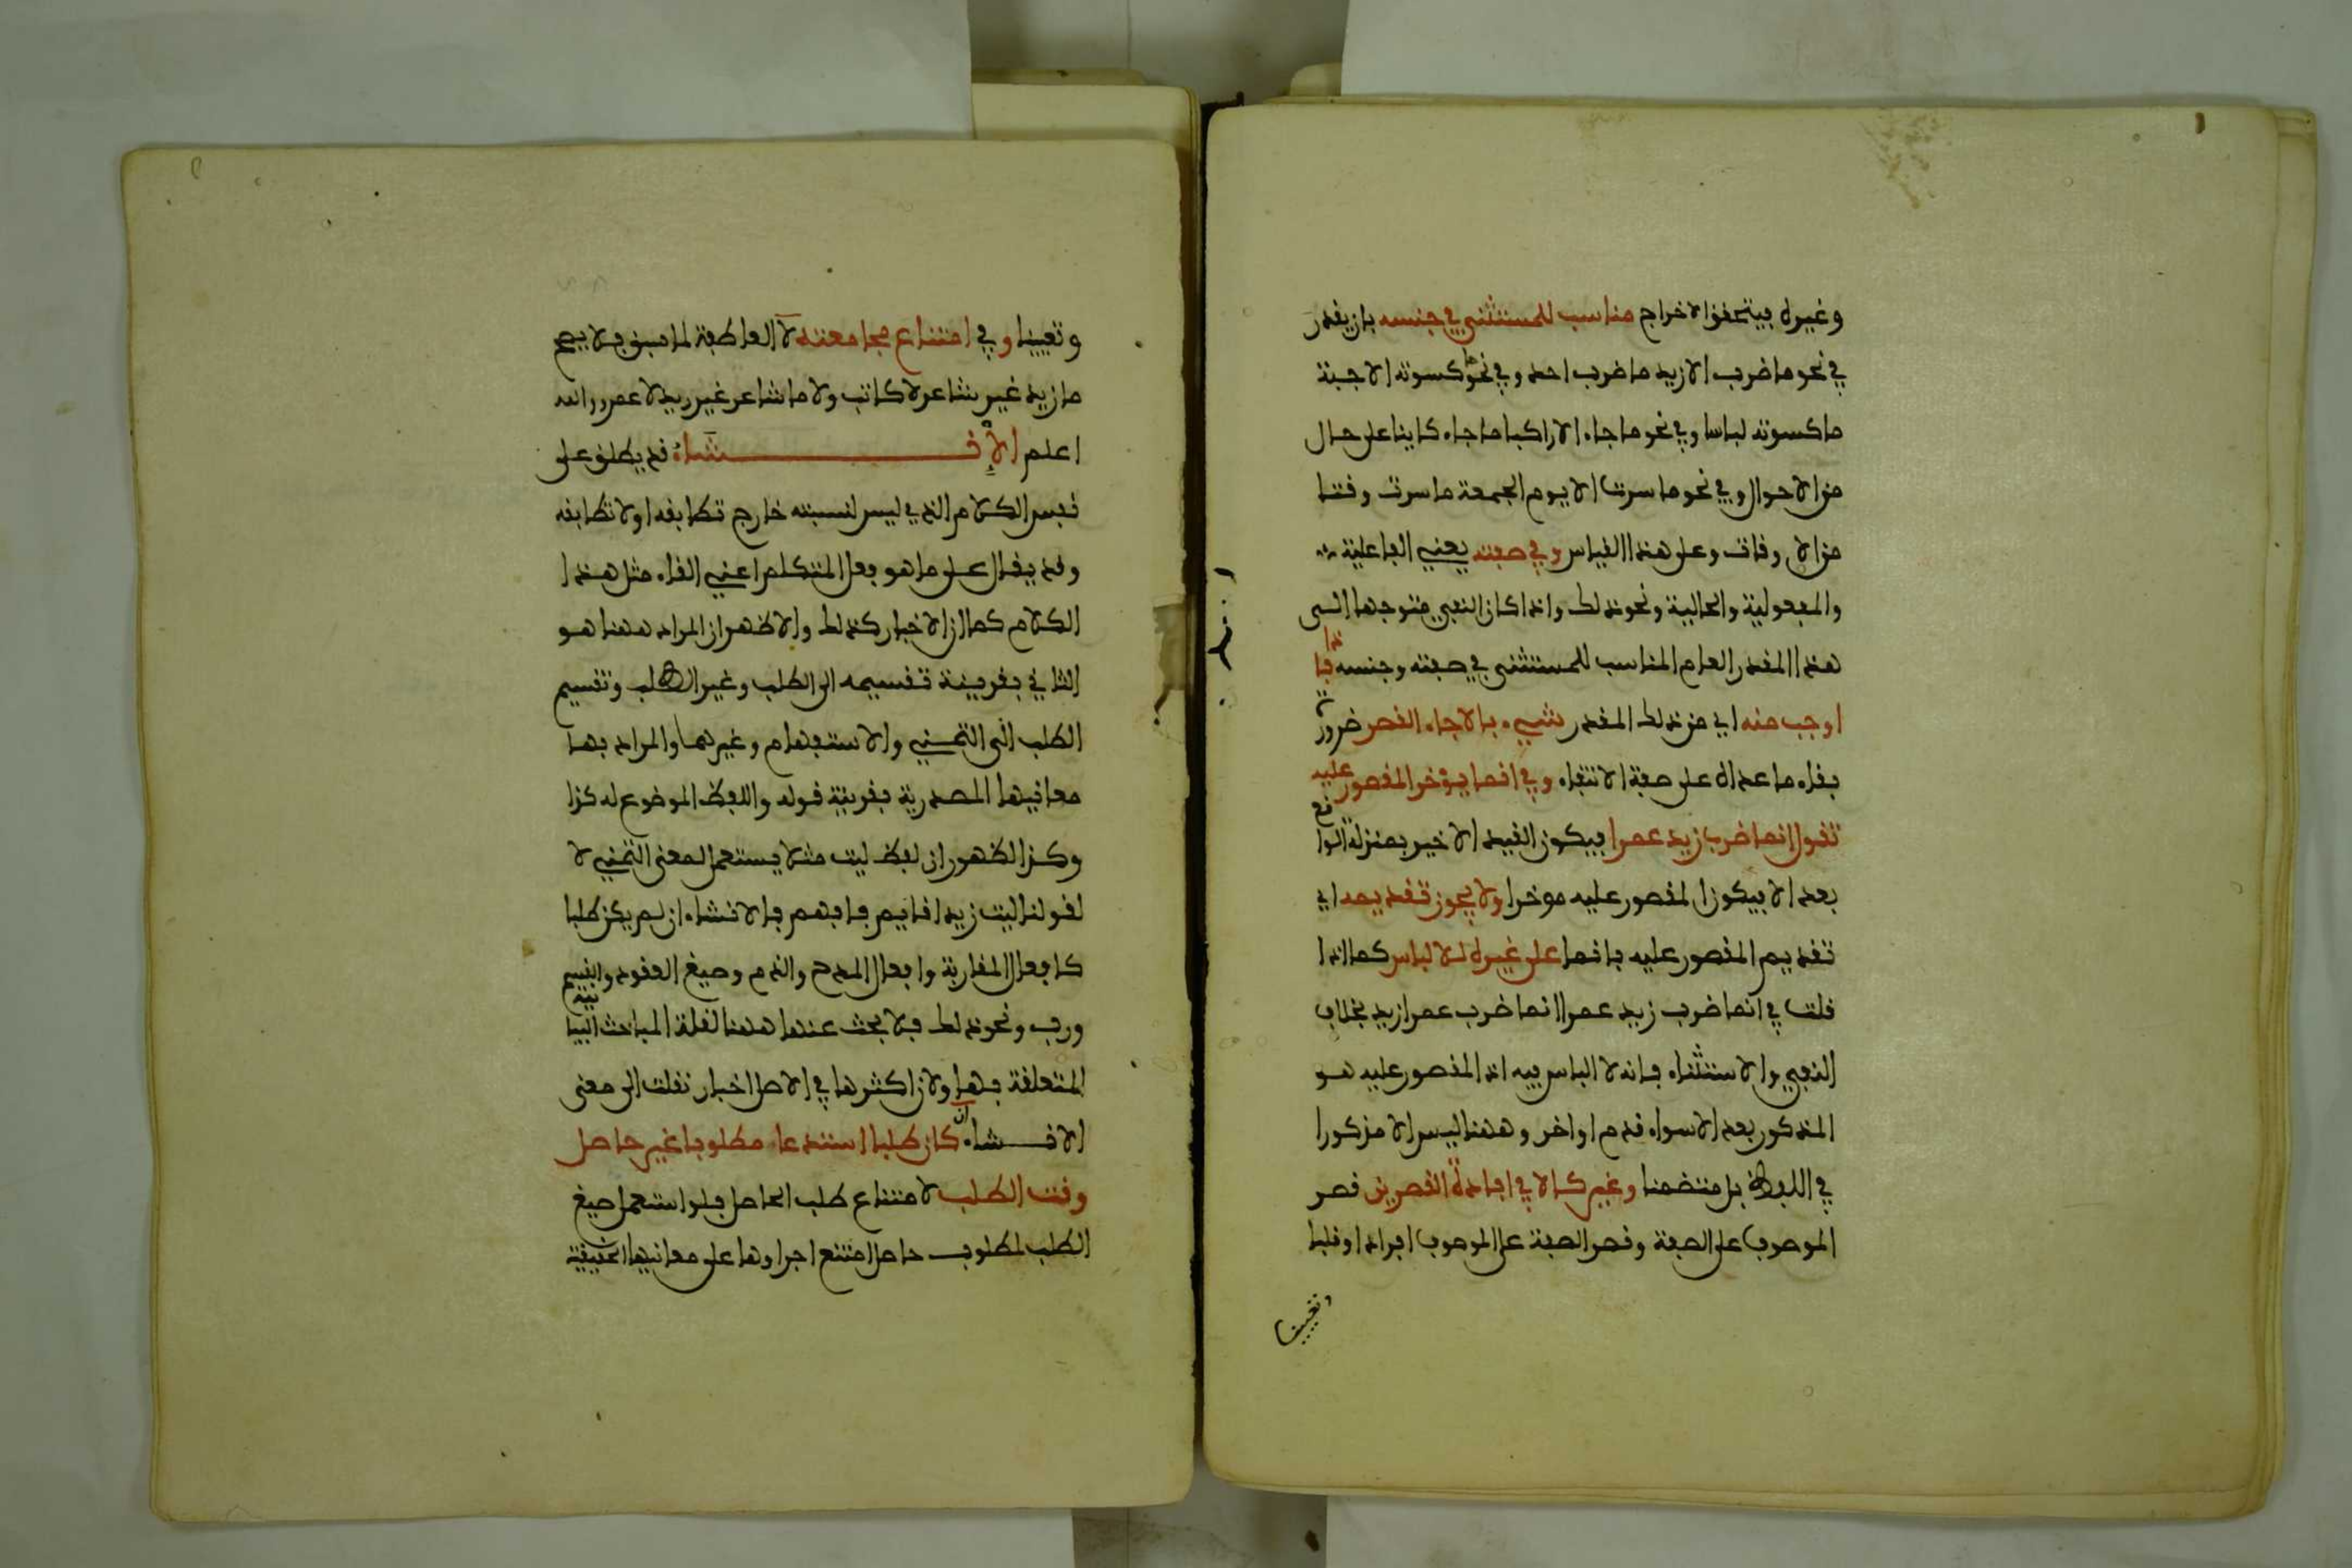 وغيره فيتحقق الاخراج مناسب للمستثنى في جنسه بان يقدر
في نحو ما ضرب الا زيد ما ضرب احد وفي نحو ما كسوته الا جبة
ما كسوته لباسا وفي نحو ما جاء الا راكبا ما جاء كاينا على حال
من الاحوال وفي نحو ما سرت الا يوم الجمعة ما سرت وقتا
من الاوقات وعلى هذا القياس وفي صفته يعني الفاعلية
والمفعولية والحالية ونحو ذلك واذا كان النفي متوجها الى
هذا المقدر العام المناسب للمستثنى في صفته وجنسه فاذا
اوجب منه اي من ذلك المقدر شيء بالا جاء القصر ضرورة
بقاء ما عداه على صفة الانتفاء وفي انما يؤخر المقصور عليه
تقول انما ضرب زيد عمرا فيكون القيد الاخير بمنزلة الواقع
بعد الا فيكون المقصور عليه موخرا ولا يجوز تقديمه اي
تقديم المقصور عليه بانما على غيره للالباس كما اذا
قلت في انما ضرب زيد عمرا انما ضرب عمرا زيد بخلاف
النفي والاستثناء فانه لا الباس فيه اذ المقصور عليه هو
المذكور بعد الا سواء قدم او اخر وههنا ليس الا مذكورا
في اللفظ بل متضمنا وغير كالا في افادة القصرين قصر
الموصوف على الصفة وقصر الصفة على الموصوف افرادا وقلبا
وتعيينا
وتعيينا وفي امتناع مجامعته لا العاطفة لما سبق فلا يصح
ما زيد غير شاعر لا كاتب ولا ما شاعر غير زيد لا عمرو والله
اعلم الإنشاء قد يطلق على
نفس الكلام الذي ليس لنسبته خارج تطابقه او لا تطابقه
وقد يقال على ما هو فعل المتكلم اعني القاء مثل هذا
الكلام كما ان الاخبار كذلك والاظهر ان المراد ههنا هو
الثاني بقرينة تقسيمه الى الطلب وغير الطلب وتقسيم
الطلب الى التمني والاستفهام وغيرهما والمراد بها
معانيها المصدرية بقرينة قوله واللفظ الموضوع له كذا
وكذا لظهور ان لفظ ليت مثلا يستعمل لمعنى التمني لا
لقولنا ليت زيدا قايم فافهم فالانشاء ان لم يكن طلبا
كافعال المقاربة وافعال المدح والذم وصيغ العقود والقسم
ورب ونحو ذلك فلا بحث عنها ههنا لقلة المباحث البيانية
المتعلقة بها ولان اكثرها في الاصل اخبار نقلت الى معنى
الانشاء ان كان طلبا استدعا مطلوبا غير حاصل
وقت الطلب لامتناع طلب الحاصل فلو استعمل صيغ
الطلب لمطلوب حاصل امتنع اجراوها على معانيها الحقيقية